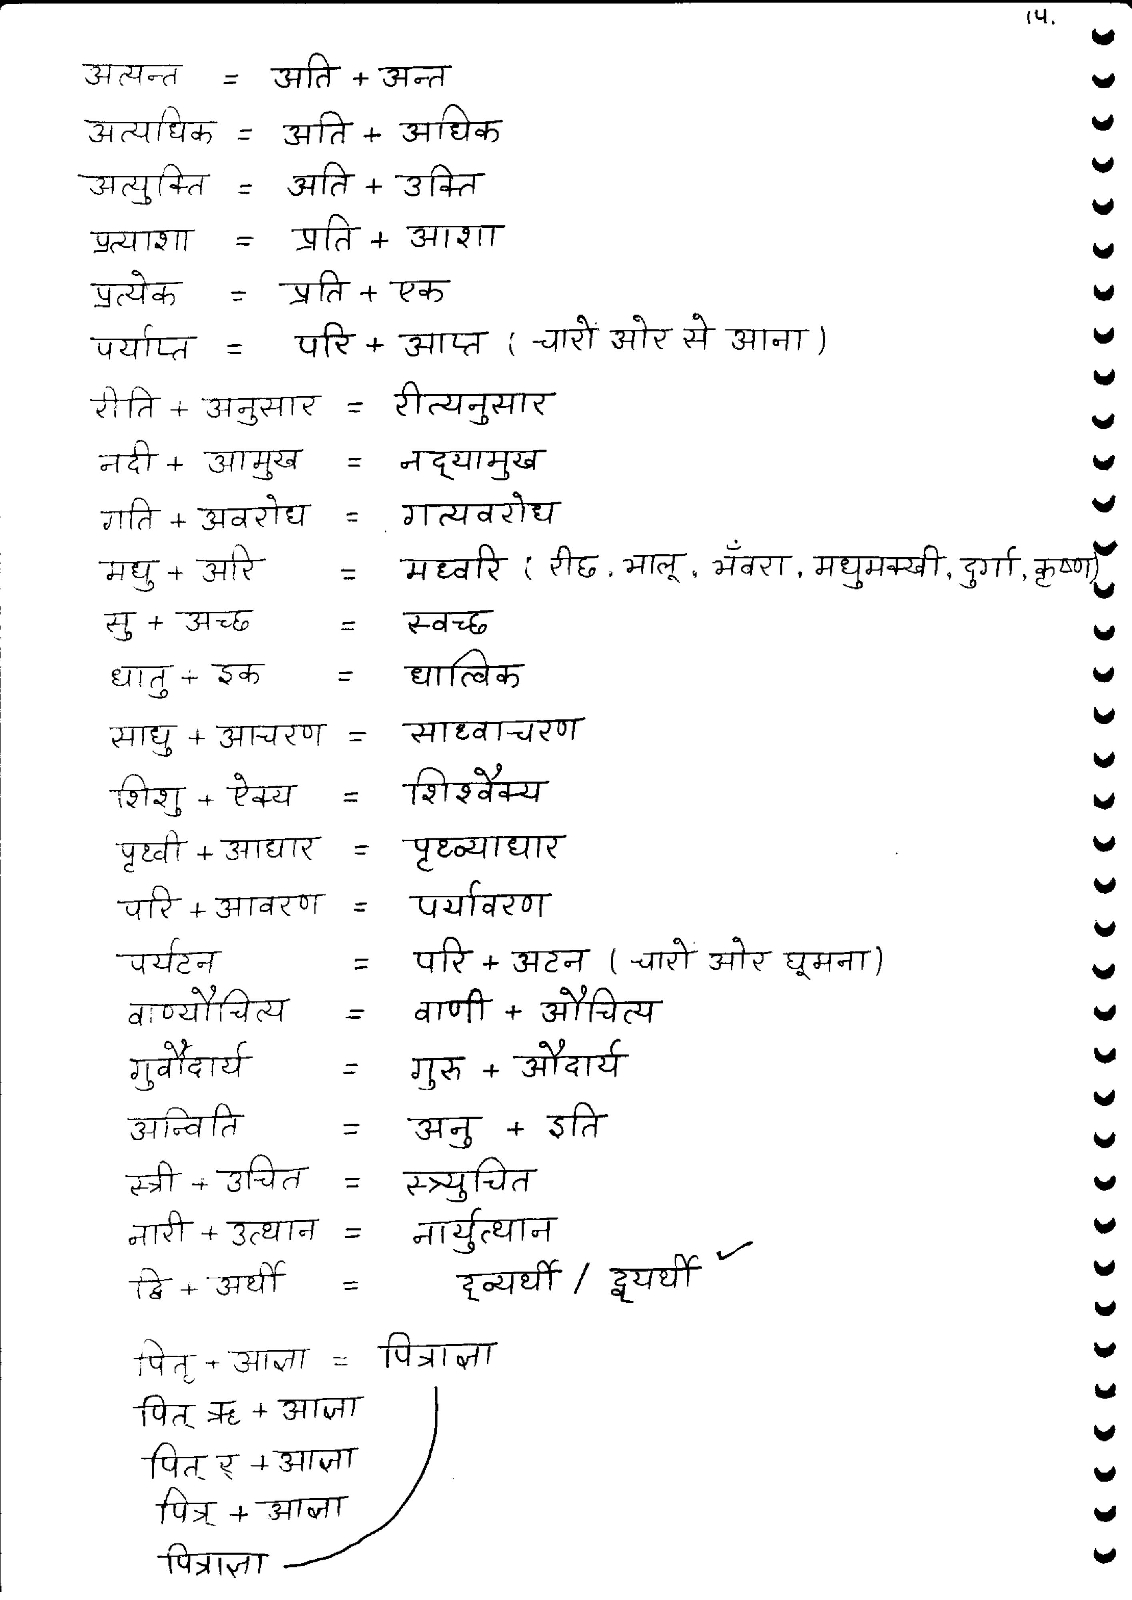 14.
अत्यन्त = अति + अन्त
अत्यधिक = अति + अधिक
अत्युक्ति = अति + उक्ति
प्रत्याशा = प्रति + आशा
प्रत्येक = प्रति + एक
पर्याप्त = परि + आप्त ( चारों ओर से आना )
रीति + अनुसार = रीत्यनुसार
नदी + आमुख = नद्यामुख
गति + अवरोध = गत्यवरोध
मधु + अरि = मध्वरि ( रीछ, भालू, भँवरा, मधुमक्खी, दुर्गा, कृष्ण)
सु + अच्छ = स्वच्छ
धातु + इक = धात्विक
साधु + आचरण = साध्वाचरण
शिशु + ऐक्य = शिश्वैक्य
पृथ्वी + आधार = पृथ्व्याधार
परि + आवरण = पर्यावरण
पर्यटन = परि + अटन ( चारों ओर घूमना )
वाण्यौचित्य = वाणी + औचित्य
गुर्वौदार्य = गुरु + औदार्य
अन्विति = अनु + इति
स्त्री + उचित = स्त्र्युचित
नारी + उत्थान = नार्युत्थान
द्वि + अर्थी = द्व्यर्थी / द्व्यर्थी ✓
पितृ + आज्ञा = पित्राज्ञा
पित् ऋ + आज्ञा
पित् र् + आज्ञा
पित्र् + आज्ञा
पित्राज्ञा